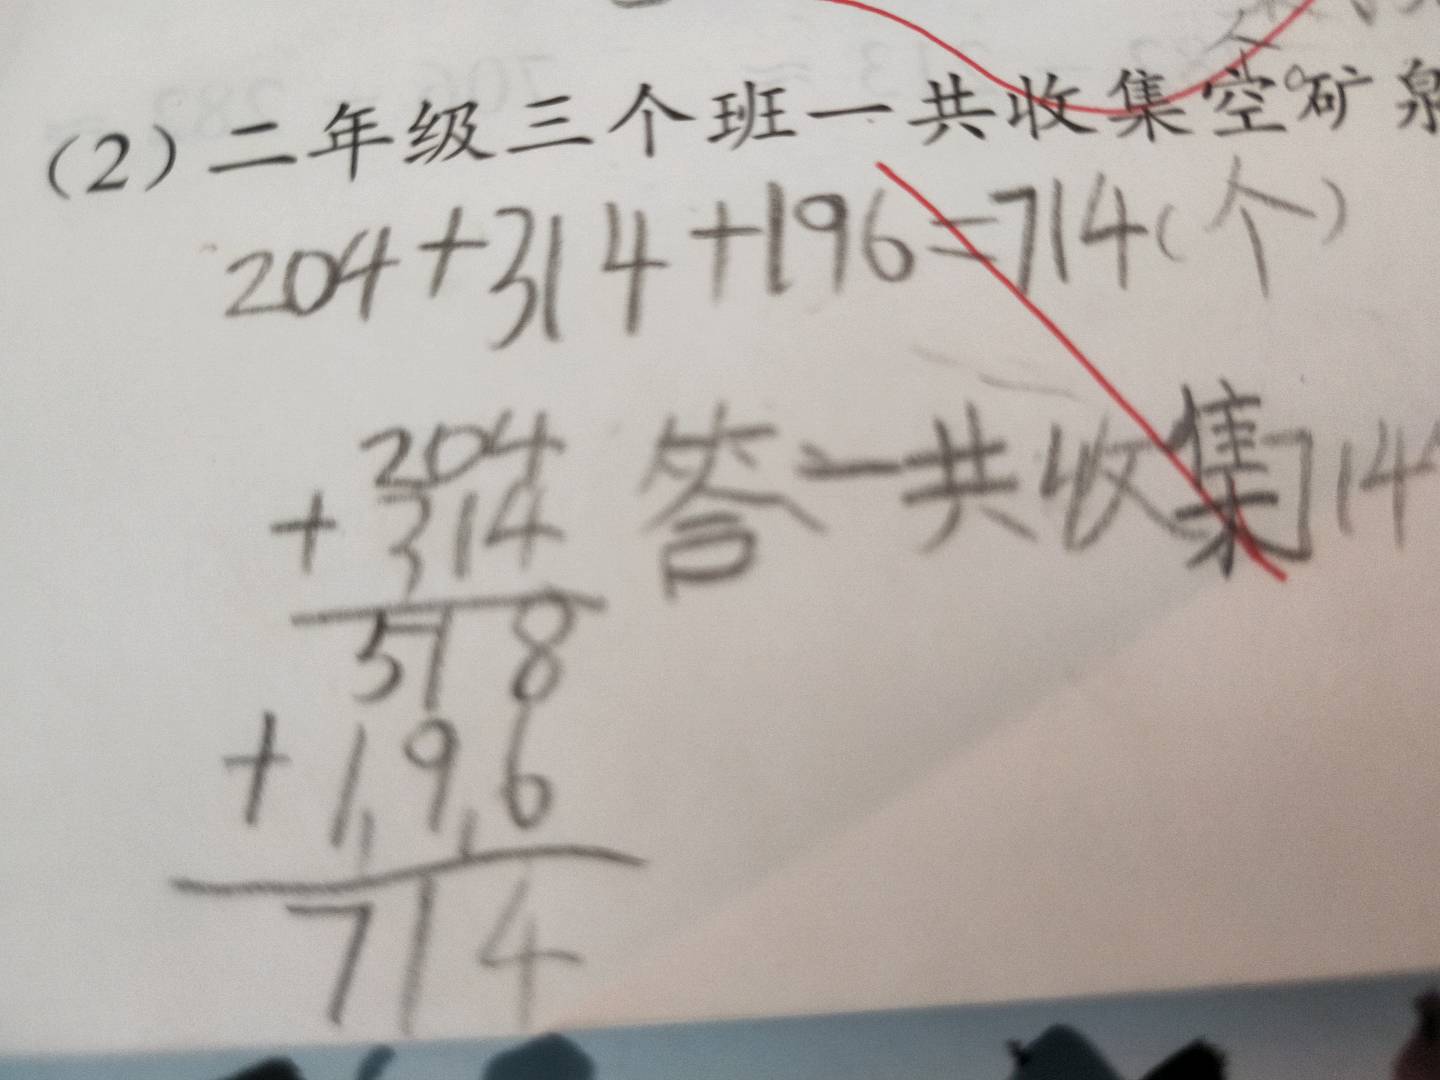 (2) 二年级三个班一共收集空矿泉
204+314+196=714(个)
204
+314
518
+196
714
答一共收集714